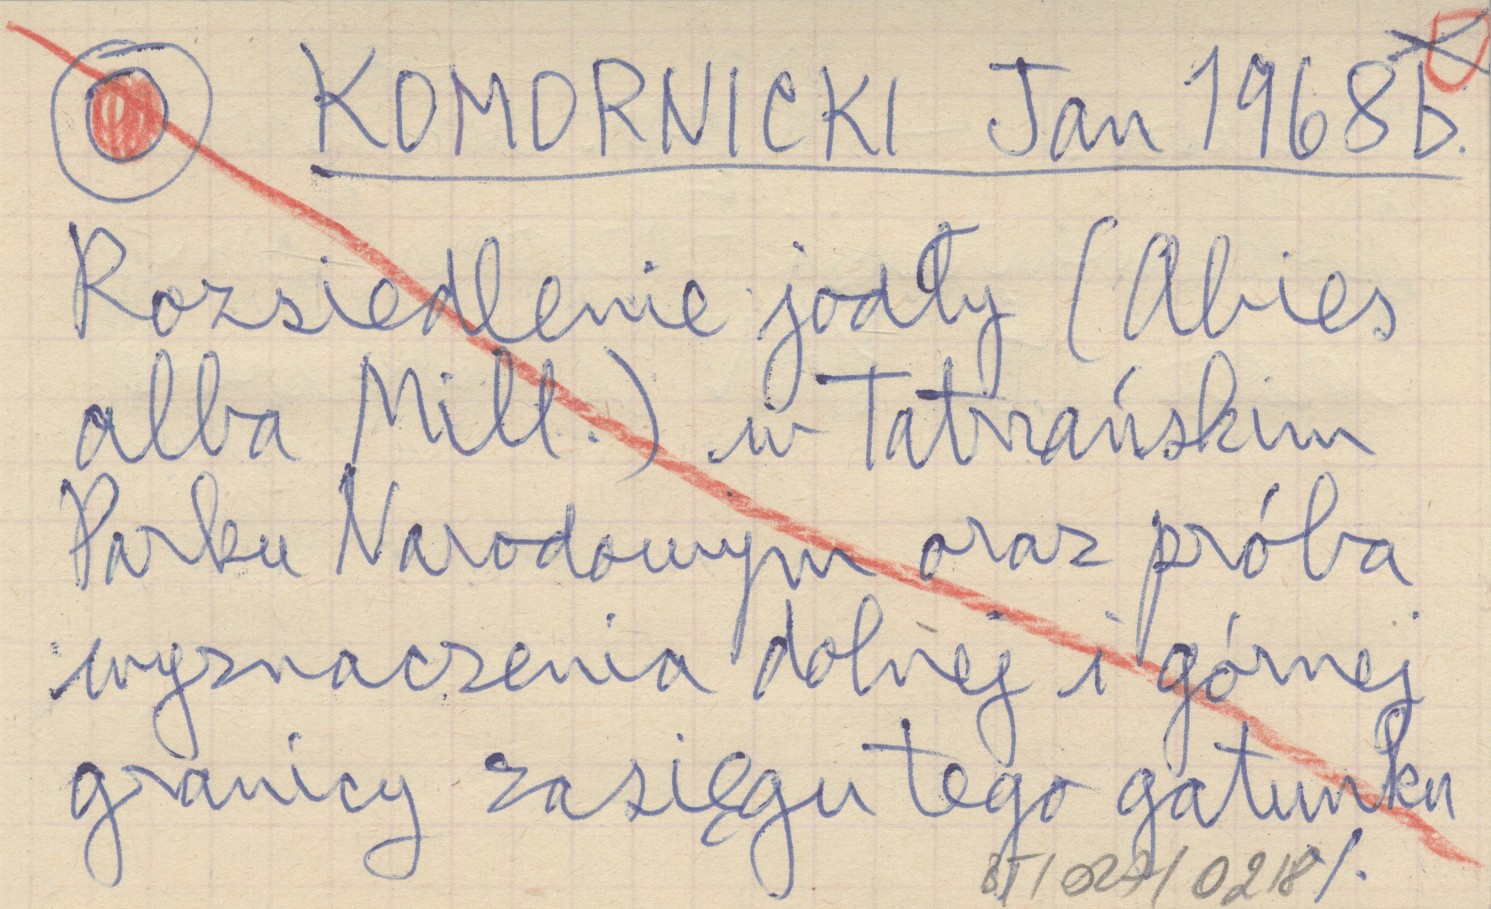 KOMORNICKI Jan 1968b.
Rozsiedlenie jodły (Abies
alba Mill.) w Tatrzańskim
Parku Narodowym oraz próba
wyznaczenia dolnej i górnej
granicy zasięgu tego gatunku
BT/027/0218/.